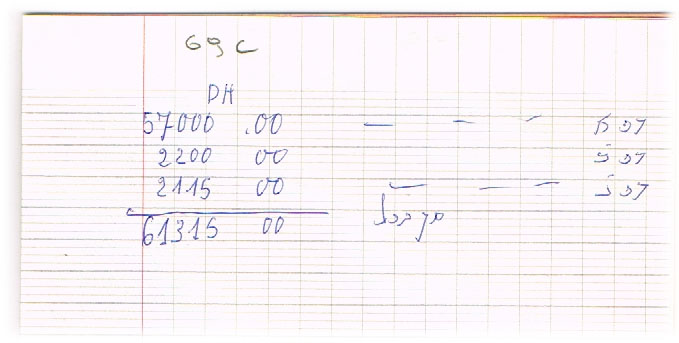 69c
DH
57000 .00 — — —
2200 00
2115 00 — — —
61315 00 סך הכל